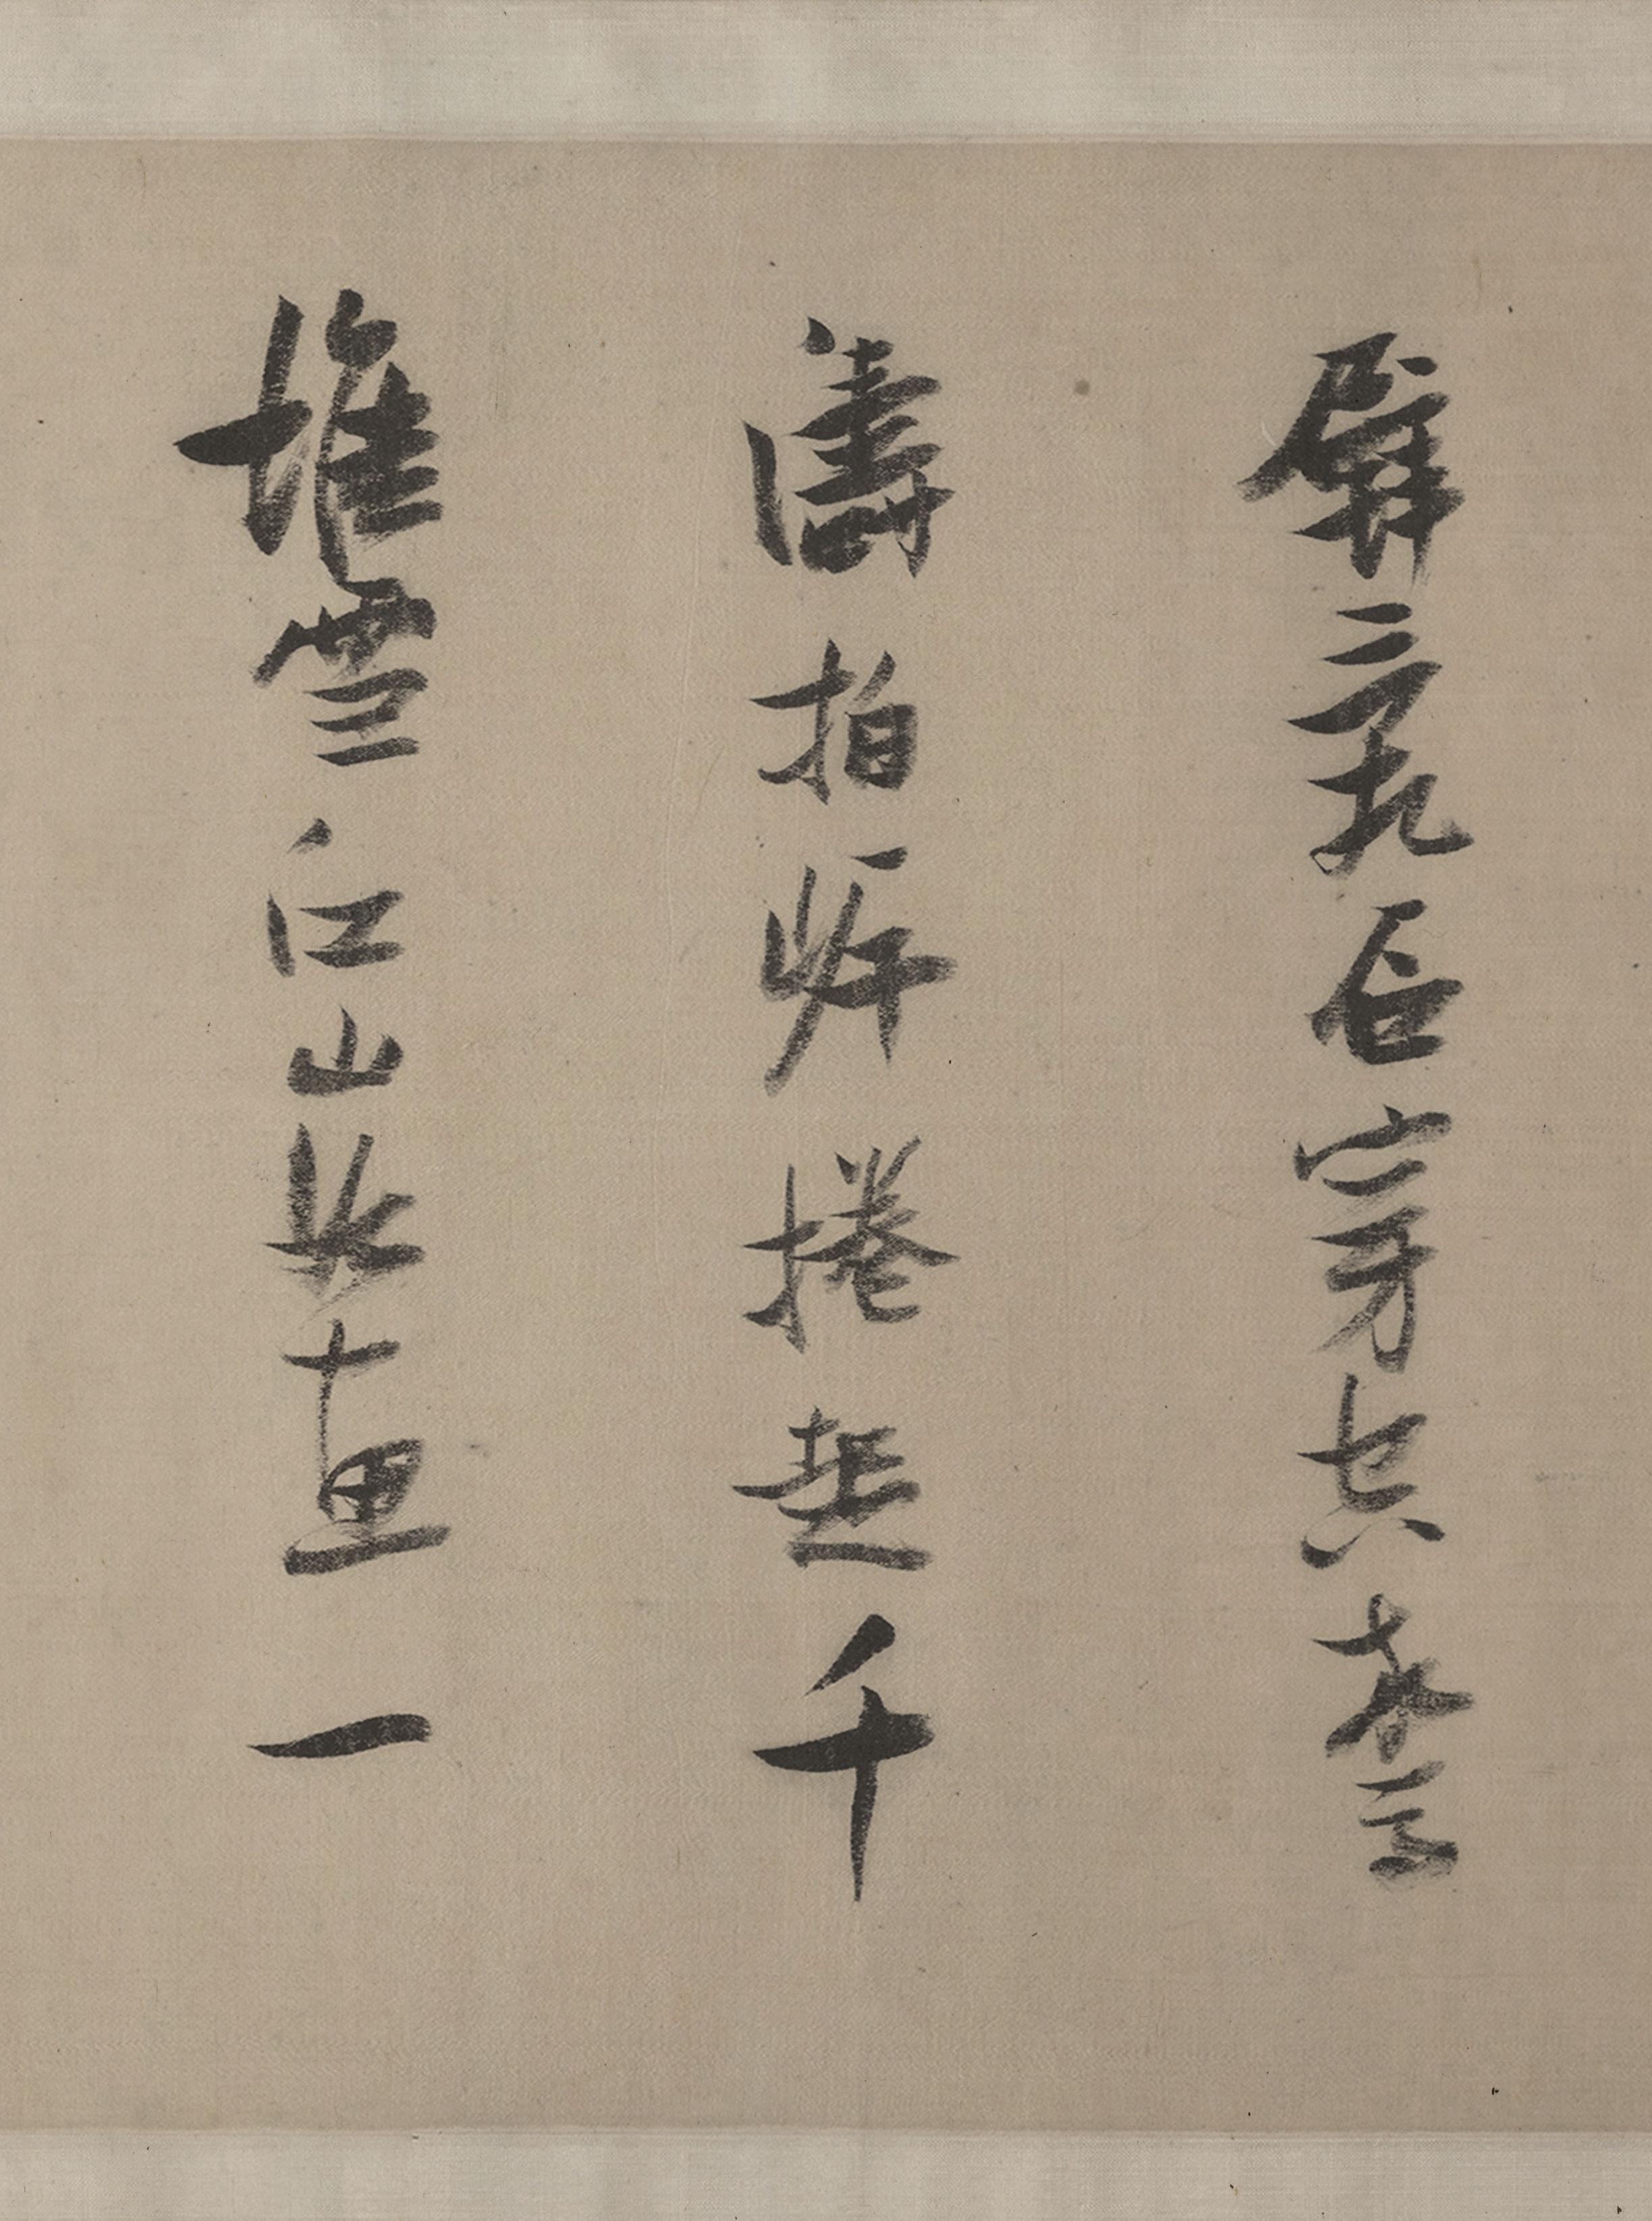 壁亂石穿空驚
濤拍岸捲起千
堆雪江山如畫一